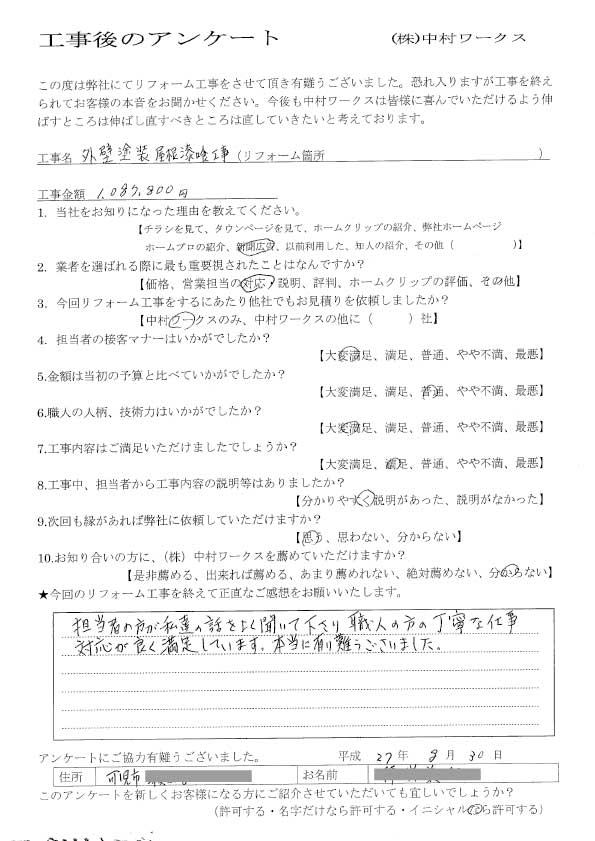 工事後のアンケート (株)中村ワークス
この度は弊社にてリフォーム工事をさせて頂き有難うございました。恐れ入りますが工事を終え
られてお客様の本音をお聞かせください。今後も中村ワークスは皆様に喜んでいただけるよう伸
ばすところは伸ばし直すべきところは直していきたいと考えております。
工事名 外壁塗装屋根漆喰工事 (リフォーム箇所 )
工事金額 1,087,800円
1. 当社をお知りになった理由を教えてください。
【チラシを見て、タウンページを見て、ホームクリップの紹介、弊社ホームページ
ホームプロの紹介、新聞広告、以前利用した、知人の紹介、その他( )】
2. 業者を選ばれる際に最も重要視されたことはなんですか?
【価格、営業担当の対応・説明、評判、ホームクリップの評価、その他】
3. 今回リフォーム工事をするにあたり他社でもお見積りを依頼しましたか?
【中村ワークスのみ、中村ワークスの他に( )社】
4. 担当者の接客マナーはいかがでしたか?
【大変満足、満足、普通、やや不満、最悪】
5.金額は当初の予算と比べていかがでしたか?
【大変満足、満足、普通、やや不満、最悪】
6.職人の人柄、技術力はいかがでしたか?
【大変満足、満足、普通、やや不満、最悪】
7.工事内容はご満足いただけましたでしょうか?
【大変満足、満足、普通、やや不満、最悪】
8.工事中、担当者から工事内容の説明等はありましたか?
【分かりやすく説明があった、説明がなかった】
9.次回も縁があれば弊社に依頼していただけますか?
【思う、思わない、分からない】
10.お知り合いの方に、(株)中村ワークスを薦めていただけますか?
【是非薦める、出来れば薦める、あまり薦めれない、絶対薦めない、分からない】
★今回のリフォーム工事を終えて正直なご感想をお願いいたします。
担当者の方が私達の話をよく聞いて下さり職人の方の丁寧な仕事
対応が良く満足しています。本当に有り難うございました。
アンケートにご協力有難うございました。 平成 27年 8月 30日
住所 可児市 お名前
このアンケートを新しくお客様になる方にご紹介させていただいても宜しいでしょうか?
(許可する・名字だけなら許可する・イニシャルなら許可する)